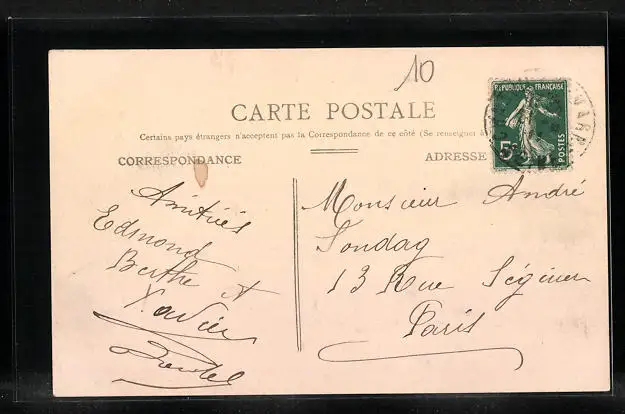 10
CARTE POSTALE
Certains pays étrangers n'acceptent pas la Correspondance de ce côté (Se renseigner à
CORRESPONDANCE
ADRESSE
REPUBLIQUE FRANÇAISE
5c
POSTES
Amitiés
Edmond
Berthe et
Xavier
Monsieur André
Sondag
13 Rue Séguier
Paris